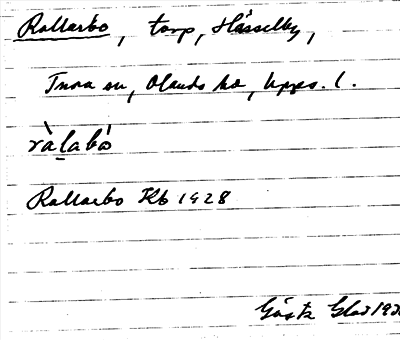 Rallarbo, torp, Hässelby,
Tuna sn, Olands hd, Upps. l.
ràlabó
Rallarbo Kb 1928
Gösta